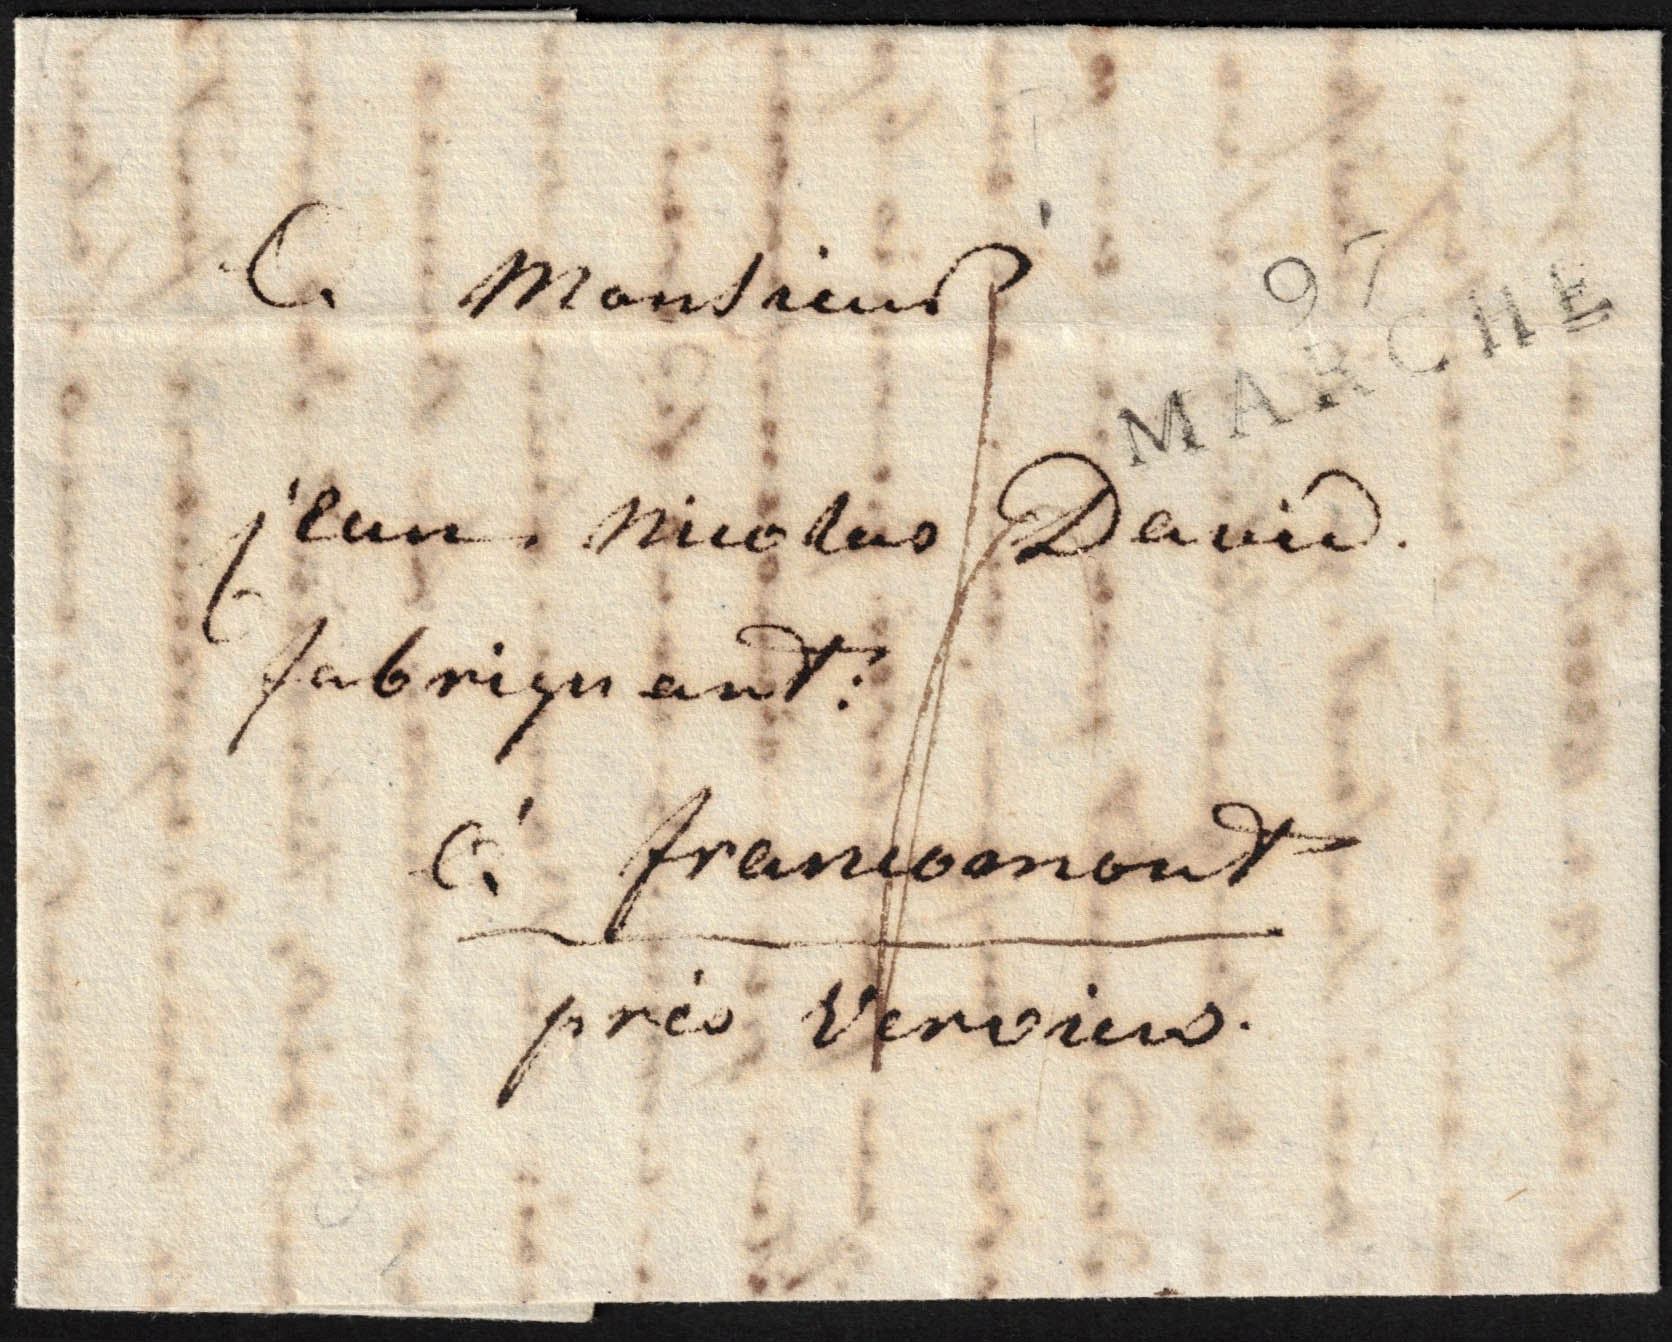 A Monsieur
97
MARCHE
jean Nicolas David.
fabriquant:
à francomont
près Verviers.